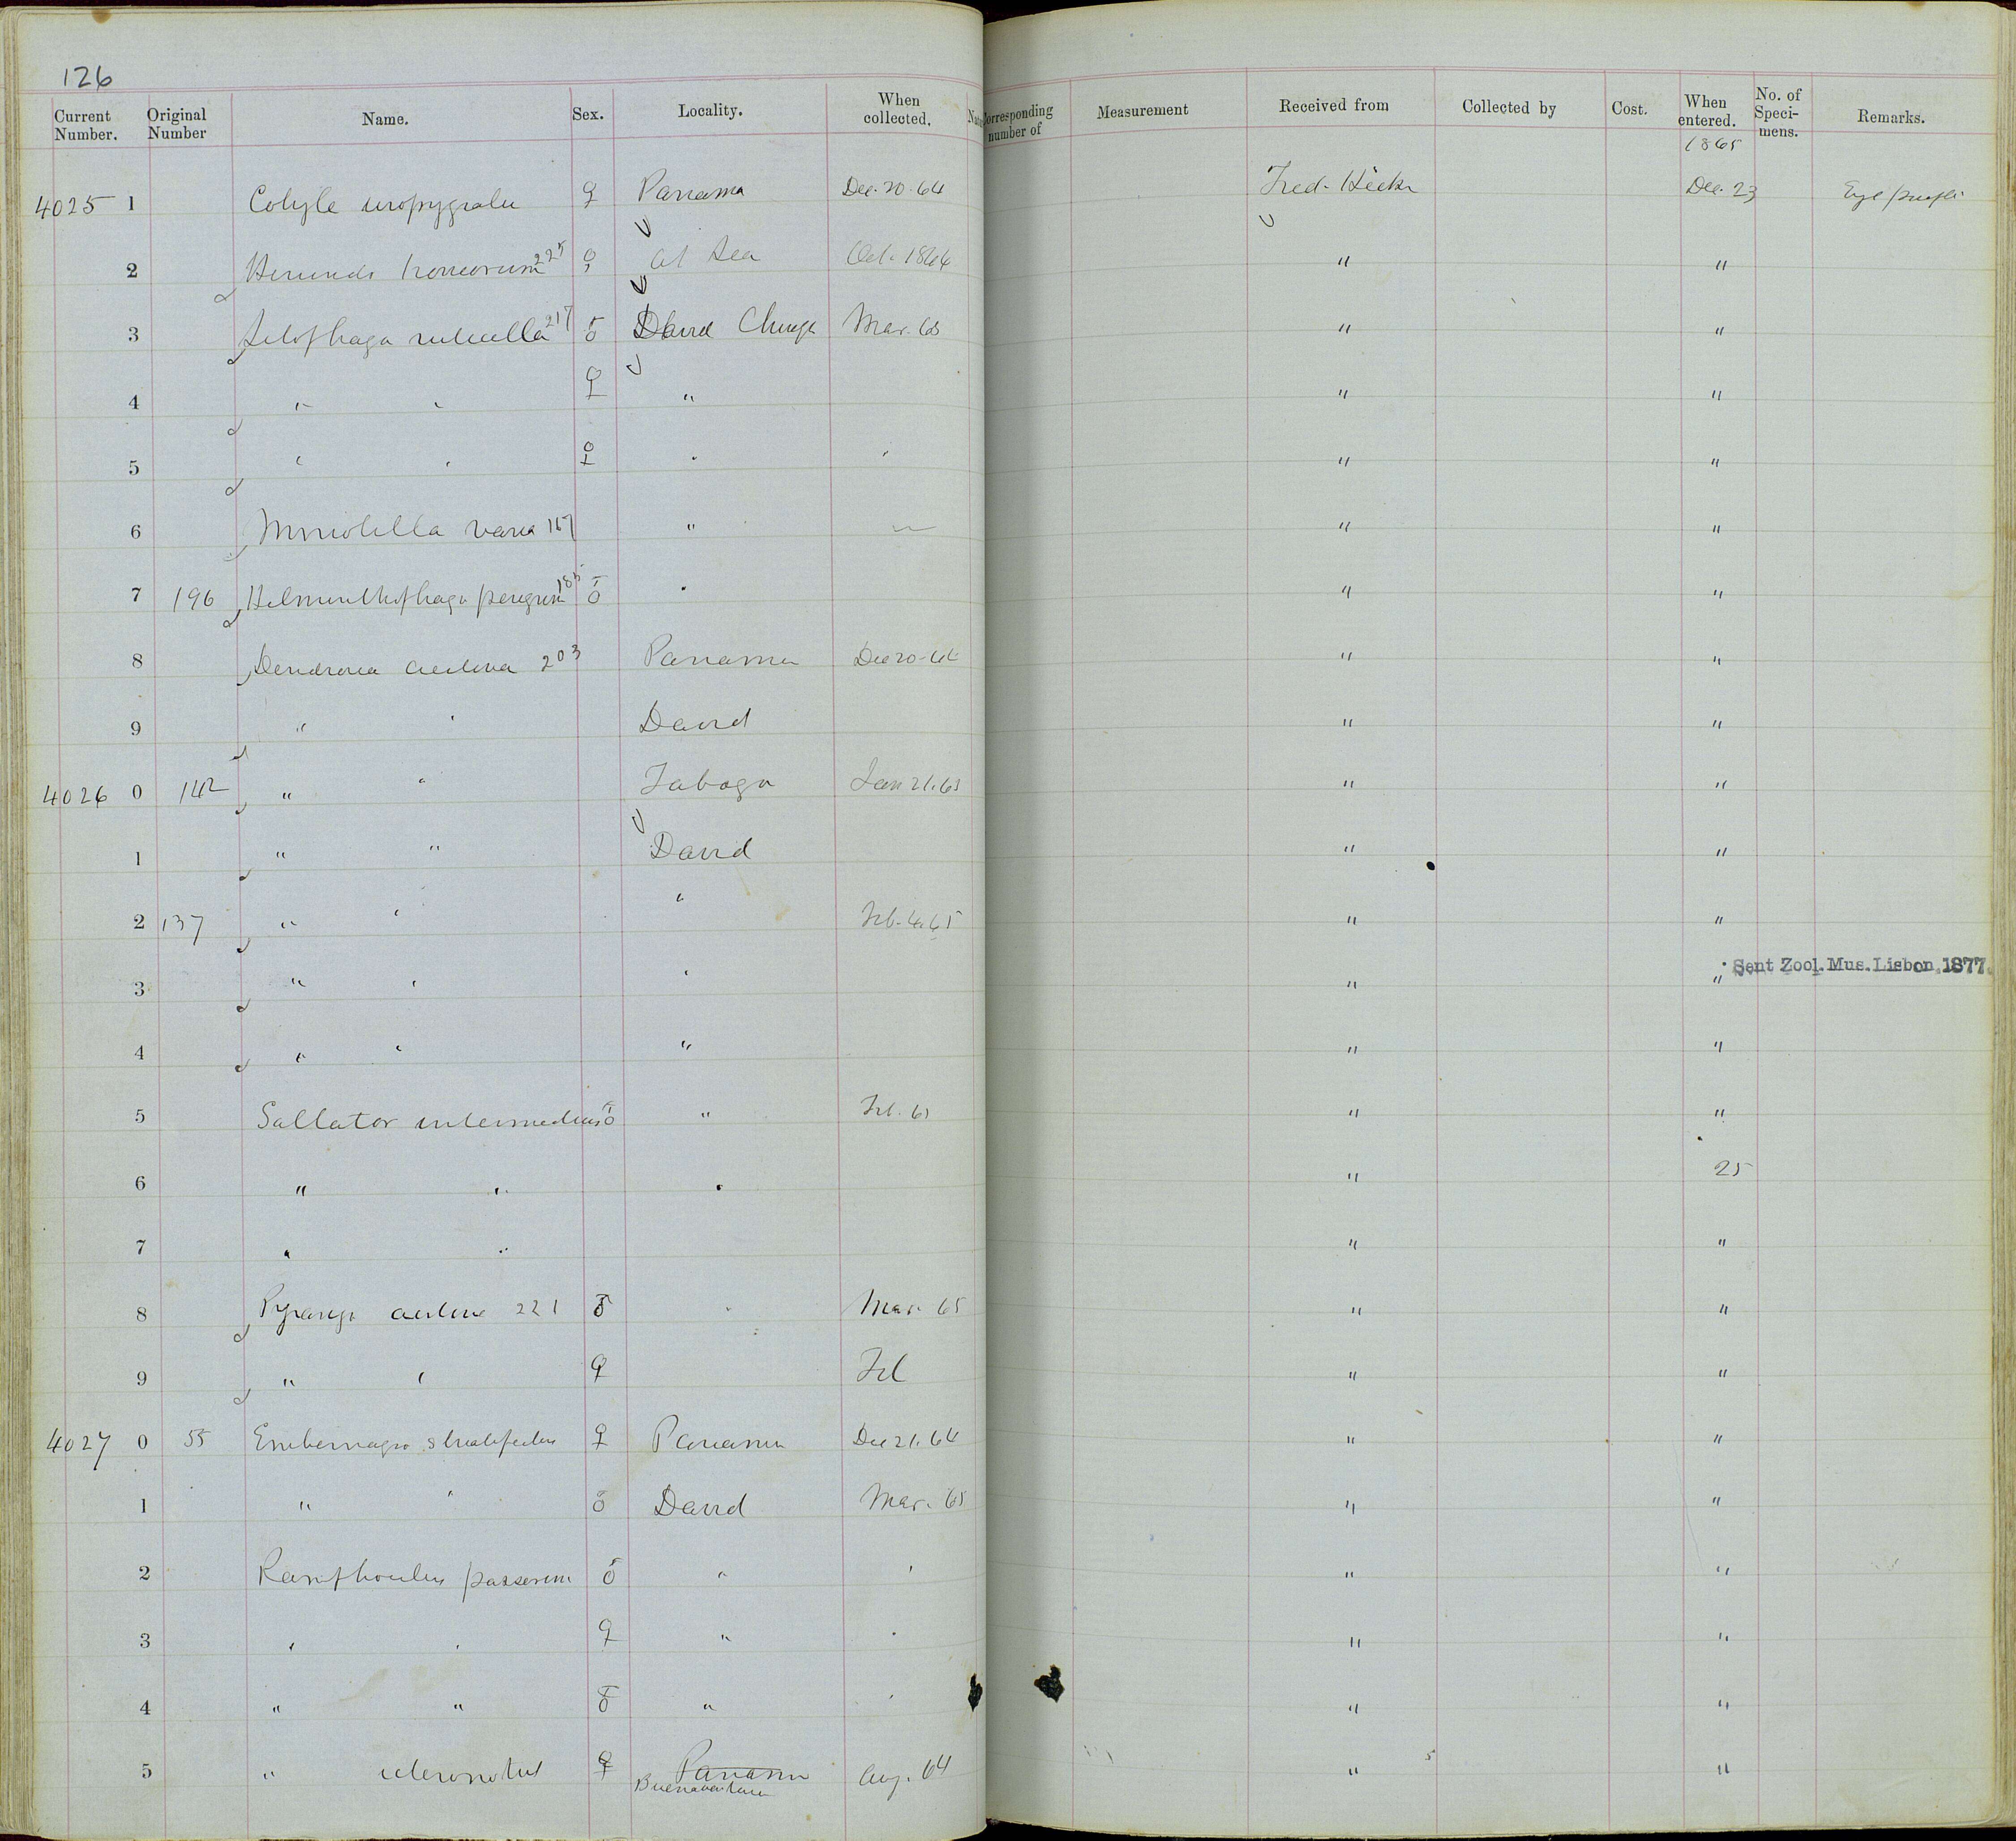 126
Current Number. Original Number Name. Sex. Locality. When collected. Corresponding number of Measurement Received from Collected by Cost. When entered. No. of Speci-mens. Remarks.
1865
4025 1 Cotyle uropygialis ♀ Panama Dec. 20. 64 Fred. Hicks Dec. 23
2 Hirundo horreorum 225 ♀ at Sea Oct. 1864 " "
3 Setophaga ruticilla 217 ♂ David Mar. 65 " "
4 " " ♀ " " "
5 " " ♀ " " " "
6 Mniotilta varia 167 " " "
7 196 Helminthophaga peregrina 185 ♂ " " "
8 Dendroica aestiva 203 Panama Dec 20. 64 " "
9 " " David " "
4026 0 142 " " Taboga Jan 21. 65 " "
1 " " David " "
2 137 " " " Feb. 4. 65 " "
3 " " " " " Sent Zool. Mus. Lisbon 1877.
4 " " " " "
5 Saltator intermedius ♂ " Feb. 65 " "
6 " " " " 25
7 " " " "
8 Pyranga aestiva 221 ♂ " Mar. 65 " "
9 " " ♀ Feb " "
4027 0 55 Embernagra striaticeps ♀ Panama Dec 21. 64 " "
1 " " ♂ David Mar. 65 " "
2 Ramphocelus passerini ♂ " " " "
3 " " ♀ " " " "
4 " " ♂ " " " "
5 " icteronotus ♀ Panama Aug. 64 " "
Buenaventura